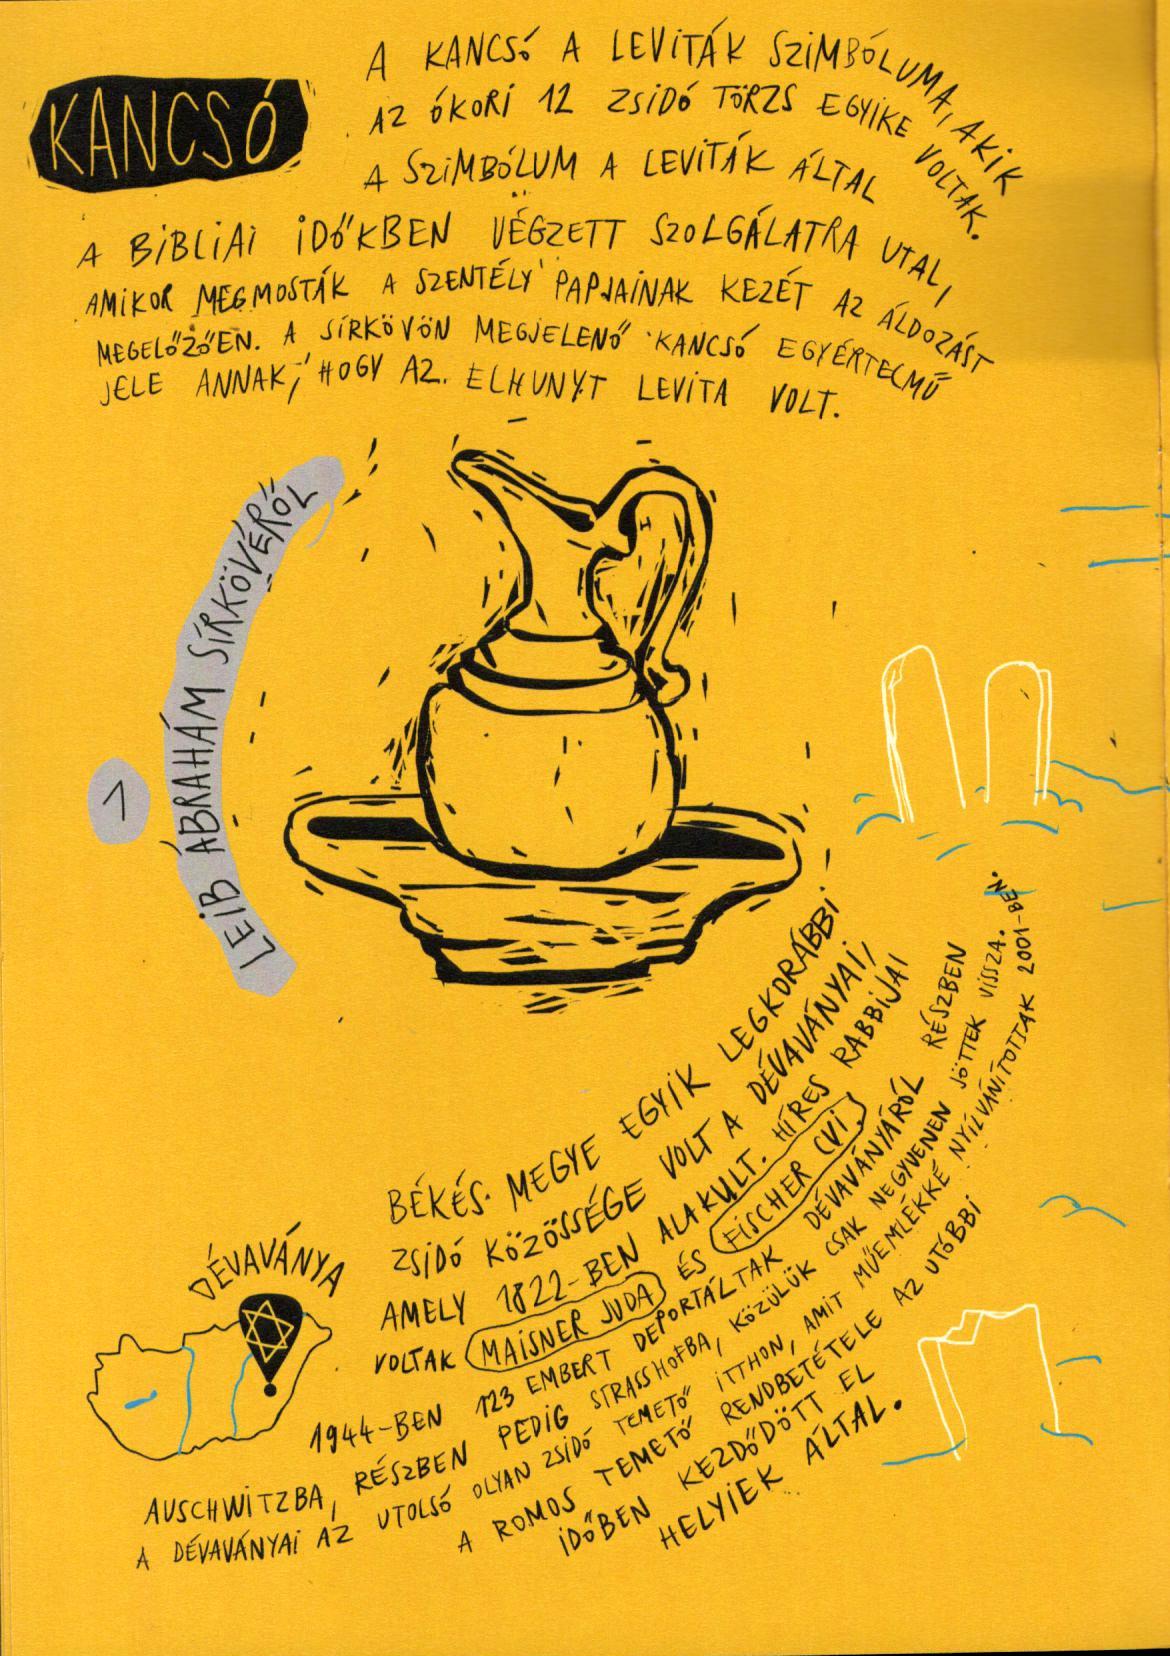 KANCSÓ
A KANCSÓ A LEVITÁK SZIMBÓLUMA, AKIK
AZ ÓKORI 12 ZSIDÓ TÖRZS EGYIKE VOLTAK.
A SZIMBÓLUM A LEVITÁK ÁLTAL
A BIBLIAI IDŐKBEN VÉGZETT SZOLGÁLATRA UTAL,
AMIKOR MEGMOSTÁK A SZENTÉLY PAPJAINAK KEZÉT AZ ÁLDOZÁST
MEGELŐZŐEN. A SÍRKÖVÖN MEGJELENŐ KANCSÓ EGYÉRTELMŰ
JELE ANNAK, HOGY AZ ELHUNYT LEVITA VOLT.
1
LEIB ÁBRAHÁM SÍRKÖVÉRŐL
BÉKÉS MEGYE EGYIK LEGKORÁBBI
ZSIDÓ KÖZÖSSÉGE VOLT A DÉVAVÁNYAI,
AMELY 1822-BEN ALAKULT. HÍRES RABBIJAI
VOLTAK MAISNER JUDA ÉS FISCHER CVI
1944-BEN 123 EMBERT DEPORTÁLTAK DÉVAVÁNYÁRÓL RÉSZBEN
AUSCHWITZBA, RÉSZBEN PEDIG STRASSHOFBA, KÖZÜLÜK CSAK NEGYVENEN JÖTTEK VISSZA.
A DÉVAVÁNYAI AZ UTOLSÓ OLYAN ZSIDÓ TEMETŐ ITTHON, AMIT MŰEMLÉKKÉ NYILVÁNÍTOTTAK 2001-BEN.
A ROMOS TEMETŐ RENDBETÉTELE AZ UTÓBBI
IDŐBEN KEZDŐDÖTT EL
HELYIEK ÁLTAL.
DÉVAVÁNYA